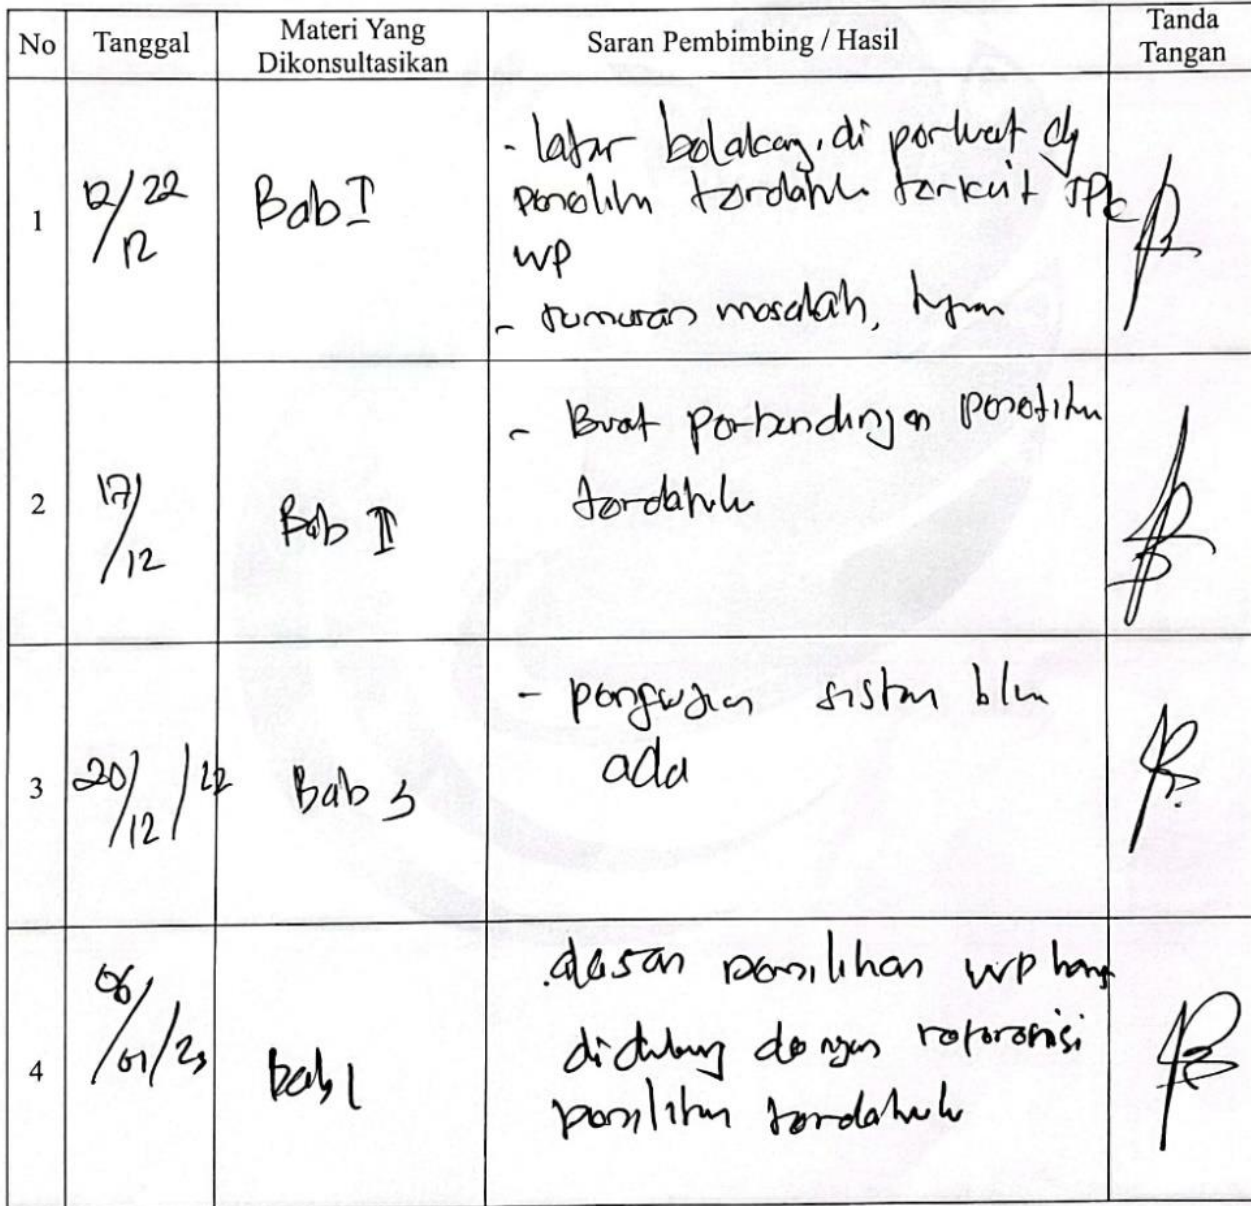 No Tanggal Materi Yang Dikonsultasikan Saran Pembimbing / Hasil Tanda Tangan
1 12/22 /12 Bab I
- latar belakang, di perkuat dg
penelitn terdahulu terkait SPK
WP
- rumusan masalah, tujuan
2 17/12 Bab II
- Buat perbandingan penelitin
terdahulu
3 20/12/22 Bab 3
- pengujian sistem blm
ada
4 06/01/23 Bab 1
. alasan pemilihan WP harus
didukung dengan referensi
penelitin terdahulu